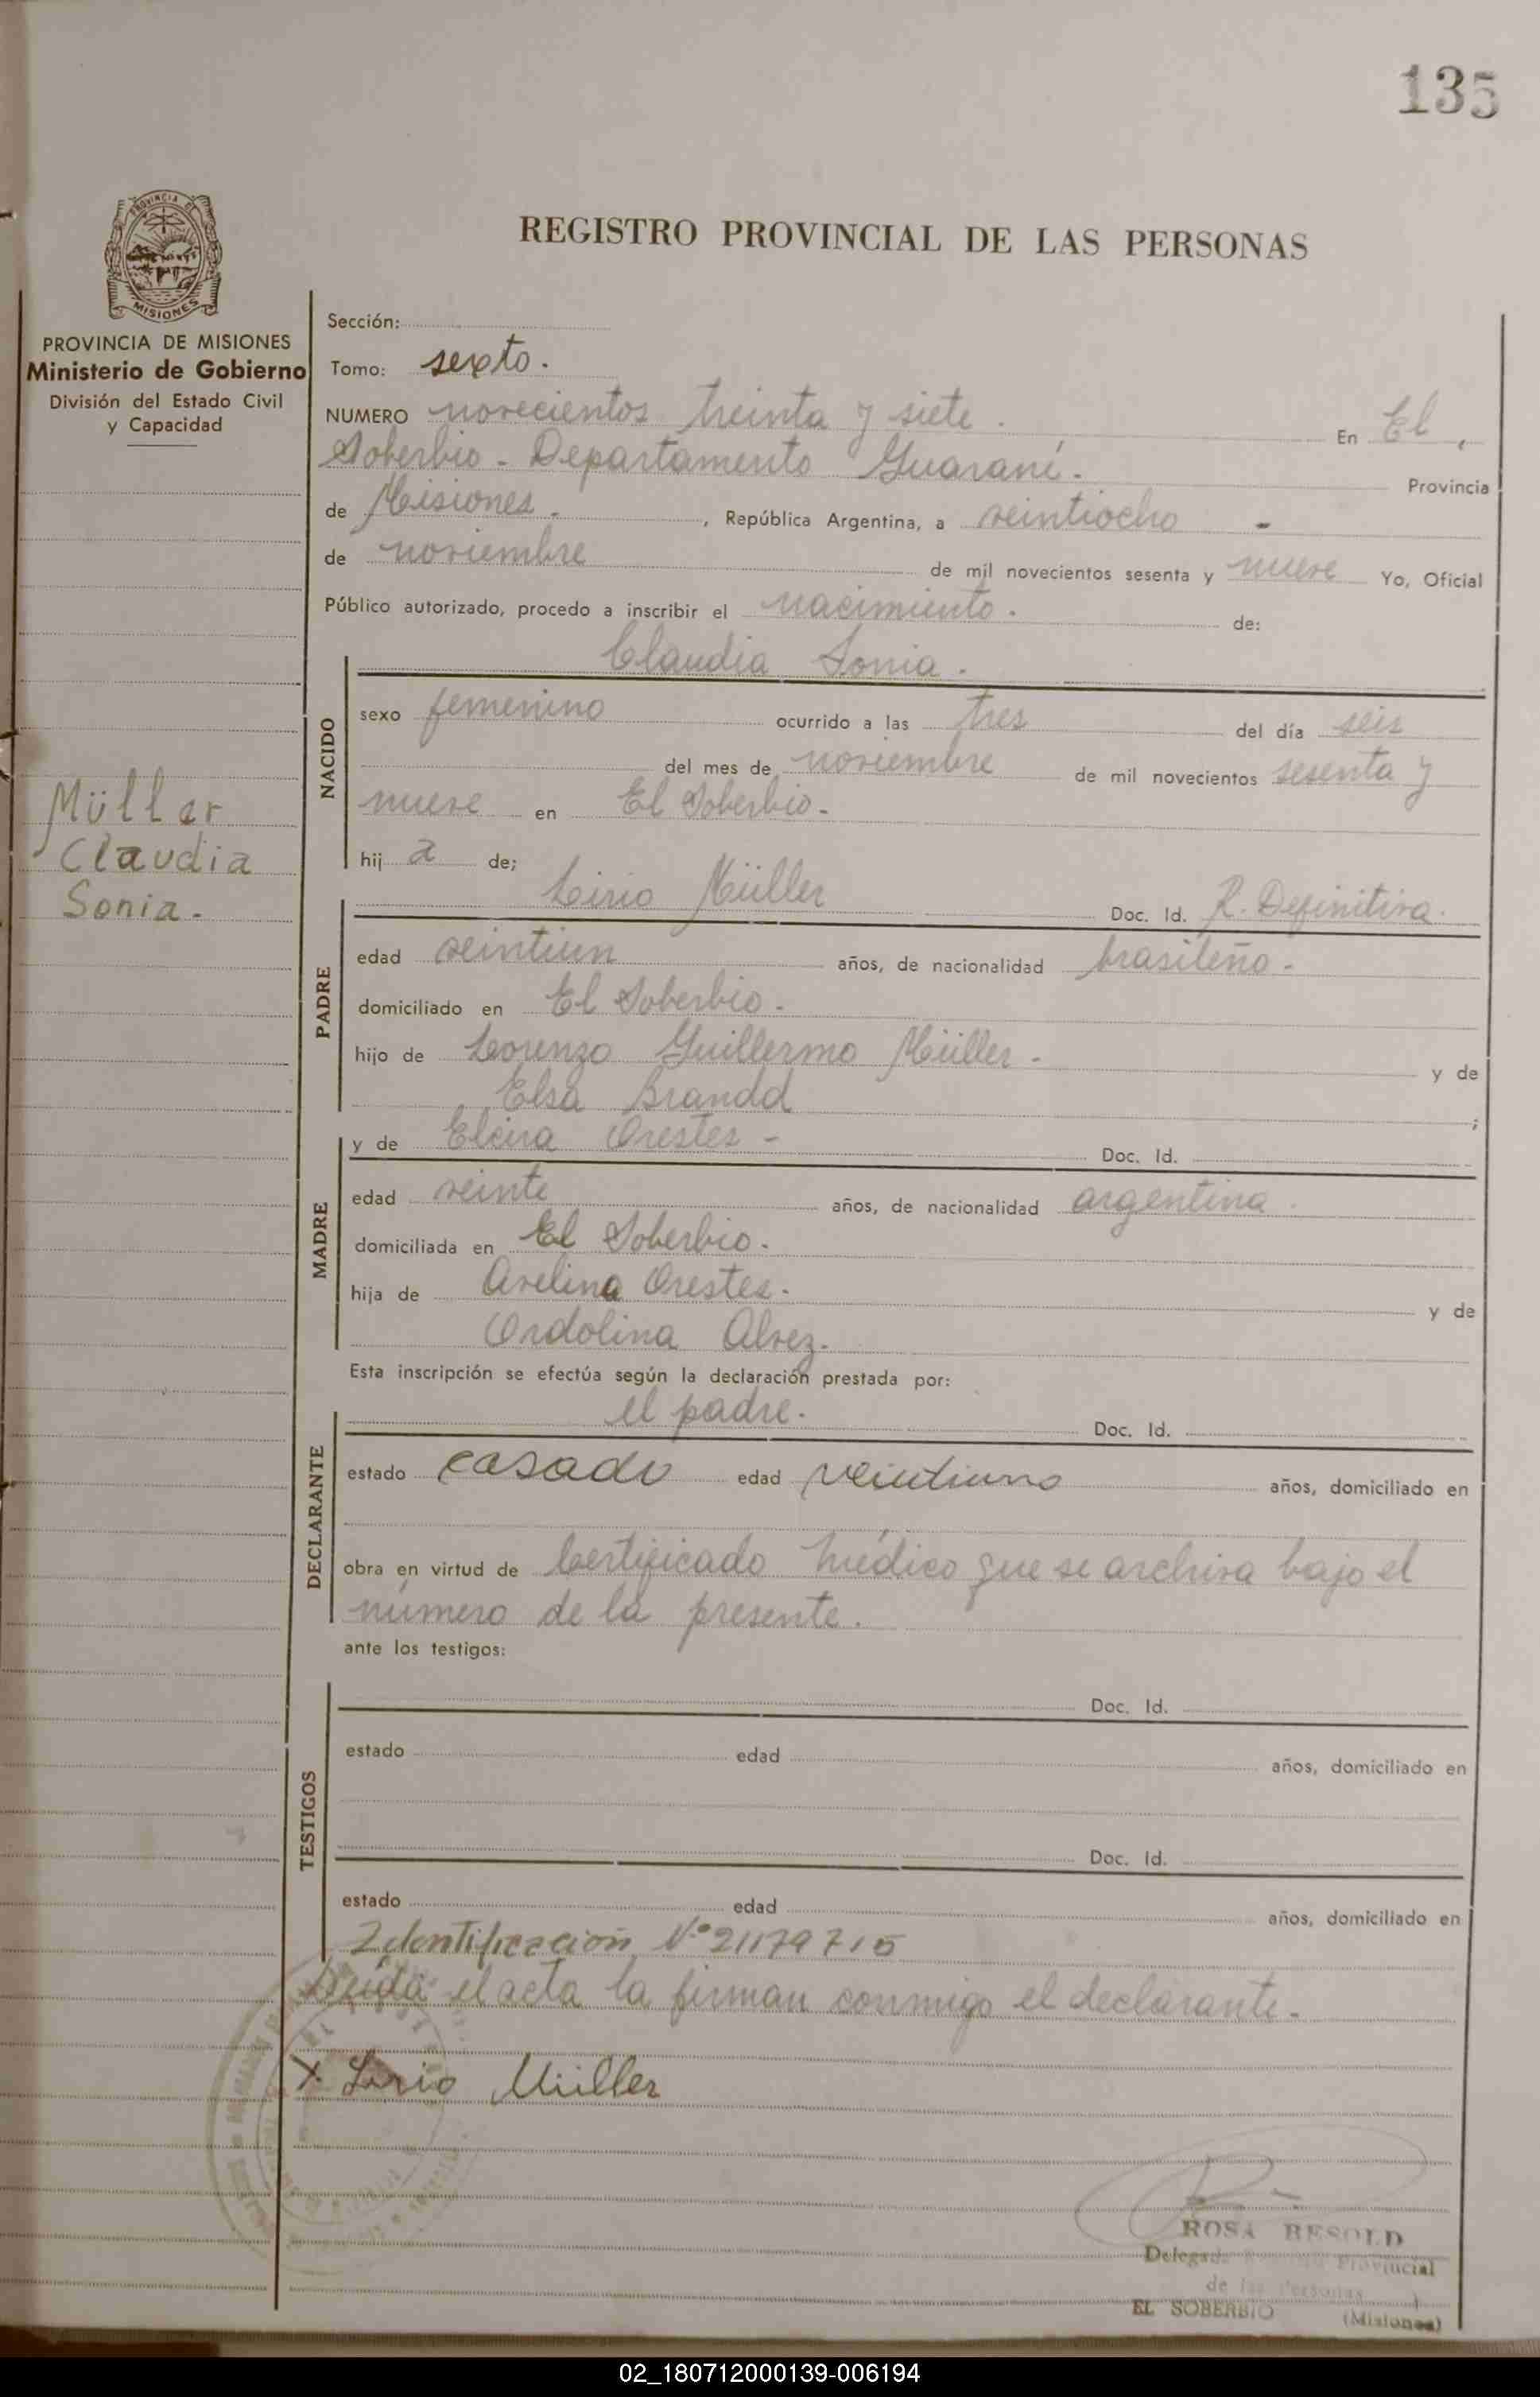 135
PROVINCIA DE
MISIONES
REGISTRO PROVINCIAL DE LAS PERSONAS
PROVINCIA DE MISIONES
Ministerio de Gobierno
División del Estado Civil
y Capacidad
Müller
Claudia
Sonia.-
Sección:
Tomo: sexto.
NUMERO novecientos treinta y siete. En El
Soberbio - Departamento Guaraní. Provincia
de Misiones.-, República Argentina, a veintiocho -
de noviembre de mil novecientos sesenta y nueve Yo, Oficial
Público autorizado, procedo a inscribir el nacimiento. de:
Claudia Sonia.
NACIDO
sexo femenino ocurrido a las tres del día seis
del mes de noviembre de mil novecientos sesenta y
nueve en El Soberbio.-
hij a de;
PADRE
Müller Doc. Id. R. Definitiva.
edad veintiun años, de nacionalidad brasileño.-
domiciliado en El Soberbio.
hijo de Lorenzo Guillermo Müller.- y de
Elsa Brandd ;
MADRE
y de Orestes - Doc. Id.
edad veinte años, de nacionalidad argentina.
domiciliada en El Soberbio.
hija de Avelina Orestes. y de
Ordolina Alvez.
Esta inscripción se efectúa según la declaración prestada por:
DECLARANTE
el padre. Doc. Id.
estado casado edad veintiuno años, domiciliado en
obra en virtud de Certificado médico que se archiva bajo el
número de la presente.
ante los testigos:
TESTIGOS
Doc. Id.
estado edad años, domiciliado en
Doc. Id.
estado edad años, domiciliado en
Identificación Nº 21179715
el acta la firman conmigo el declarante.-
X Lirio Müller
ROSA BESOLD
Provincial
de las Personas
EL SOBERBIO (Misiones)
02_180712000139-006194